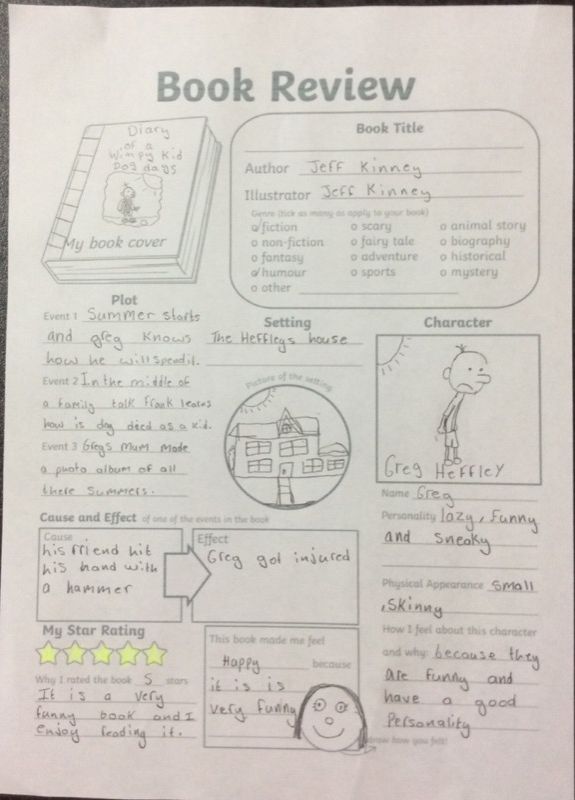 Book Review
Diary
of a
Wimpy Kid
Dog days
My book cover
Book Title
Author Jeff Kinney
Illustrator Jeff Kinney
Genre (tick as many as apply to your book)
o fiction o scary o animal story
o non-fiction o fairy tale o biography
o fantasy o adventure o historical
o humour o sports o mystery
o other
Plot
Event 1 Summer starts
and greg knows
how he will spend it.
Event 2 In the middle of
a family talk frank learns
how is dog died as a kid.
Event 3 Gregs mum made
a photo album of all
there summers.
Setting
The Heffleys house
Picture of the setting
Character
Greg Heffley
Name Greg
Personality lazy, funny
and sneaky
Physical Appearance small
,skinny
How I feel about this character
and why: because they
are funny and
have a good
Personality
Cause and Effect of one of the events in the book
Cause
his friend hit
his hand with
a hammer
Effect
Greg got injured
My Star Rating
Why I rated the book 5 stars
It is a very
funny book and I
enjoy reading it.
This book made me feel
Happy because
it is is
very funny
draw how you felt!